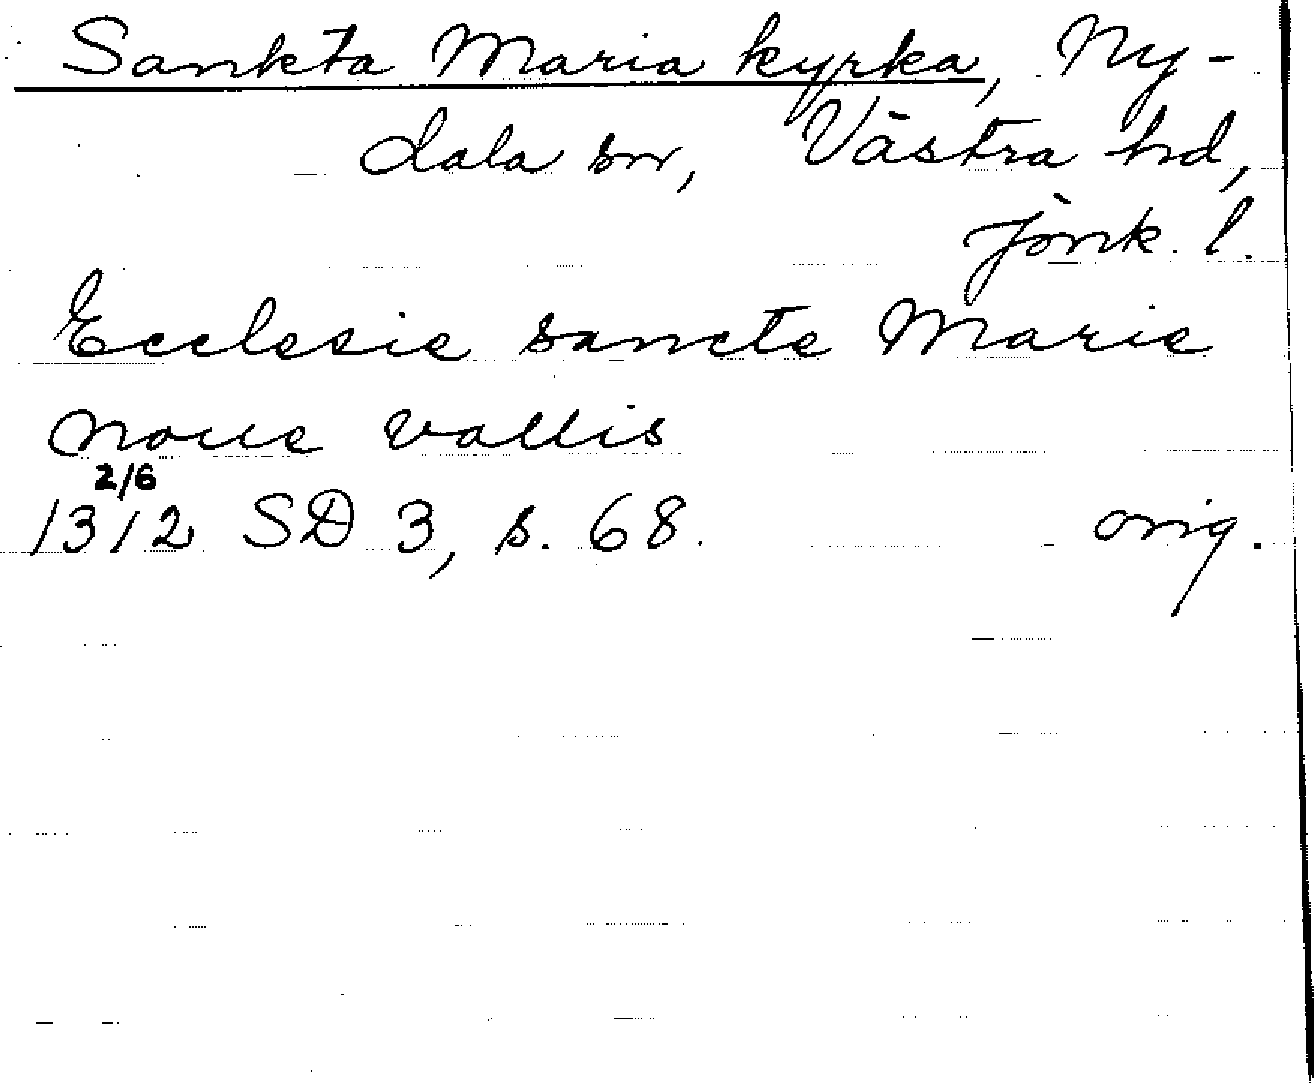 Sankta Maria kyrka, Ny-
dala sn, Västra hd,
Jönk. l.
Ecclesie sancte Marie
noue vallis
2/6
1312 SD 3, s. 68. orig.